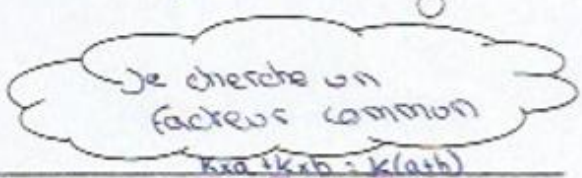 Je cherche un
facteur commun
k×a+k×b = k(a+b)